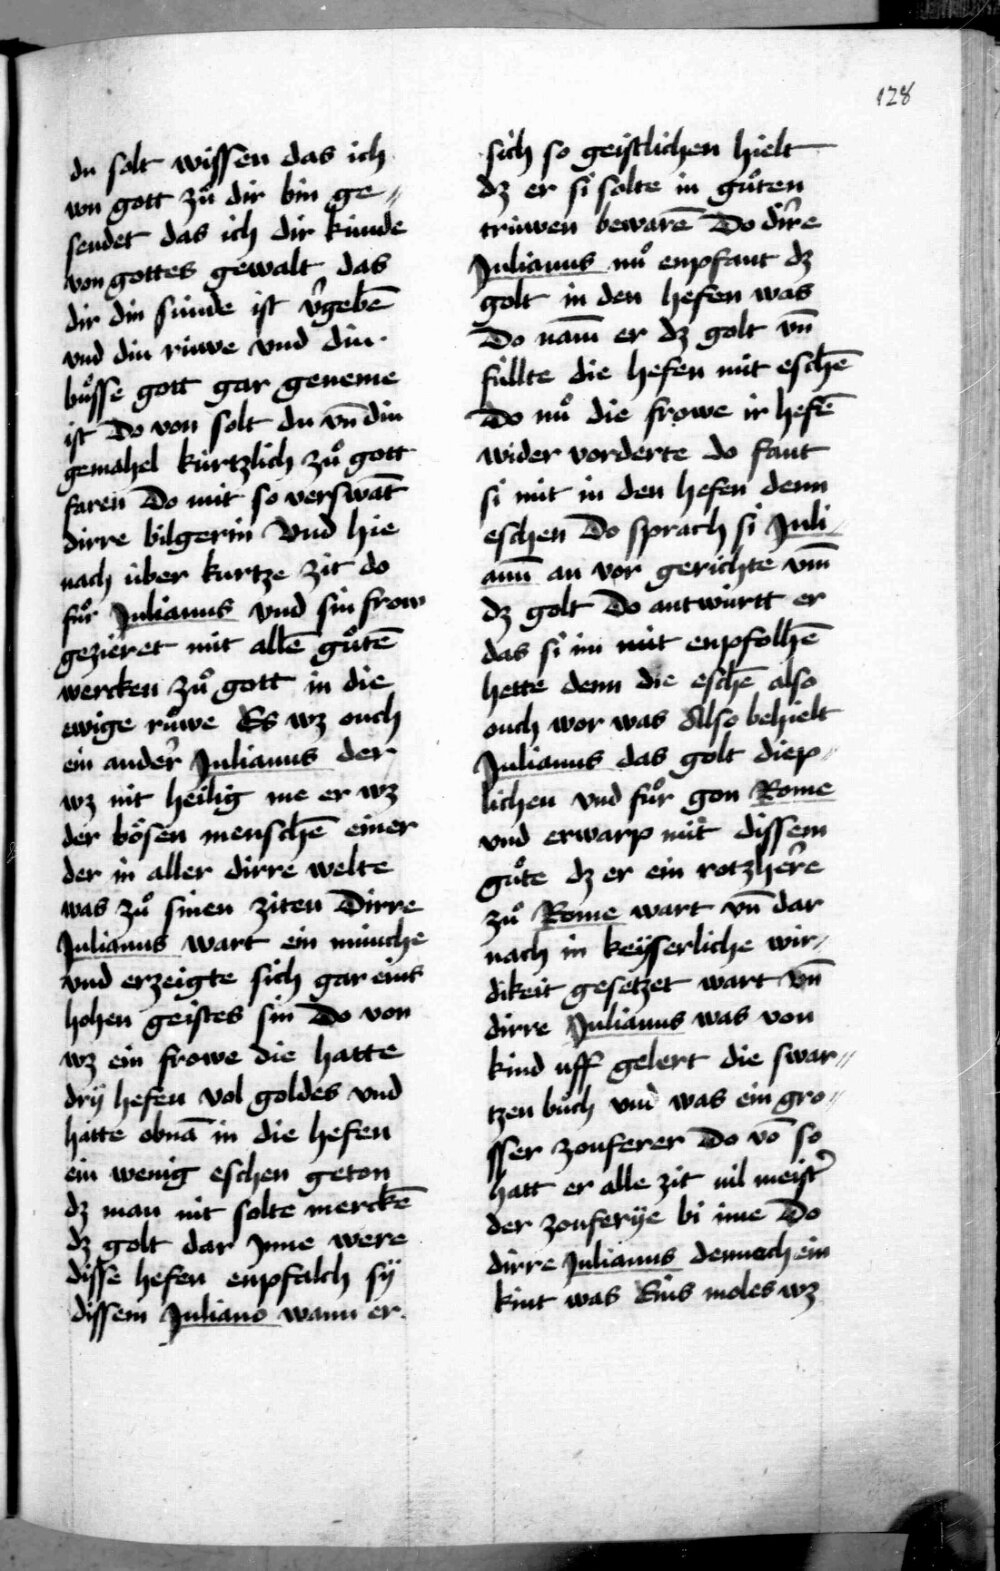 128
du solt wissen das ich
von gott zuͦ dir bin ge⸗
sendet das ich dir kúnde
von gottes gewalt das
dir din súnde ist v̾gebē
vnd din rúwe vnd din
buͤsse gott gar geneme
ist Do von solt du vn̄ din
gemahel kúrtzlich zuͦ gott
faren Do mit so verswāt
dirre bilgerin Vnd hie
nach úber kurtze zit do
fuͦr Julianus vnd sin frow
gezieret mit allē guͦtē
wercken zuͦ gott in die
ewige ruͦwe Es wz ouch
ein ander̾ Julianus der
wz nit heilig me er wz
der boͤsen menschē einer
der in aller dirre welte
was zuͦ sinen ziten Dirre
Julianus wart ein múnche
vnd erzeigte sich gar eins
hohen geistes sin Do von
wz ein frowe die hatte
drÿ hefen vol goldes vnd
hatte obnā in die hefen
ein wenig eschen geton
dz man nit solte merckē
dz golt dar Jnne were
disse hefen enpfalch sÿ
dissem Juliano wann er
sich so geistlichen hielt
dz er si solte in guͦten
trúwen bewarē Do dir̾e
Julianus nuͦ enpfant dz
golt in den hefen was
Do nam̄ er dz golt vn̄
fúllte die hefen mit eschē
Do nuͦ die frowe ir hefē
wider vorderte do fant
si nút in den hefen denn
eschen Do sprach si Juli⸗
anū an vor gerichte vm̄
dz golt Do antwúrtt er
das si im nút enpfolhē
hette denn die eschē also
ouch wor was Also behielt
Julianus das golt diep⸗
lichen vnd fuͦr gon Rome
vnd erwarp mit dissem
guͦte dz er ein rotzher̾e
zuͦ Rome wart vn̄ dar
nach in keÿserliche wir⸗
dikeit gesetzet wart vn̄
dirre Julianus was von
kind uff gelert die swar⸗
tzen buͦch vnd was ein gro⸗
sser zouferer Do vō so
hatt er alle zit vil meist̾
der zouferÿe bi ime Do
dirre Julianus dennoch ein
kint was Eins moles wz